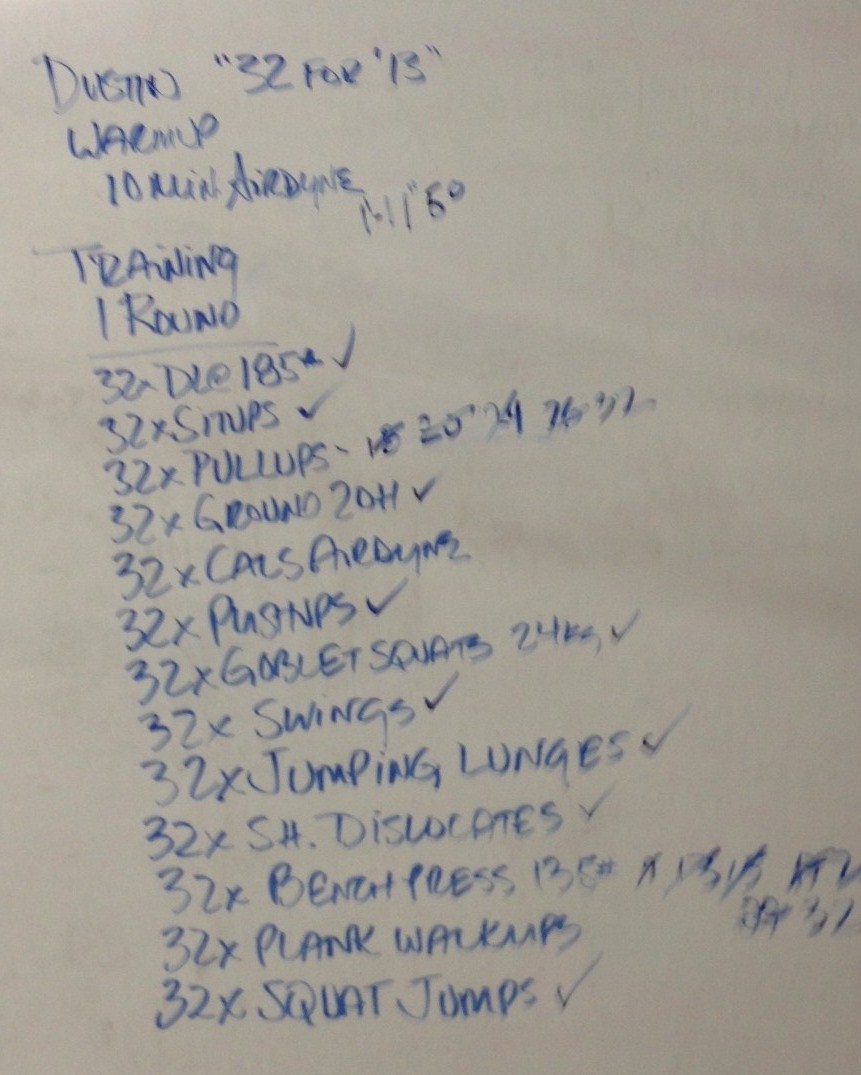 DUSTIN "32 FOR '13"
WARMUP
10 MIN AIRDYNE
TRAINING
1 ROUND
32x DL@185# ✓
32xSITUPS ✓
32x PULLUPS- 20 24 32
32x GROUND 2OH ✓
32xCALS AIRDYNE
32x PUSHUPS ✓
32xGOBLET SQUATS 24KG ✓
32x SWINGS ✓
32xJUMPING LUNGES ✓
32x SH. DISLOCATES ✓
32x BENCH PRESS 135#
32
32x PLANK WALKUPS
32x SQUAT JUMPS ✓